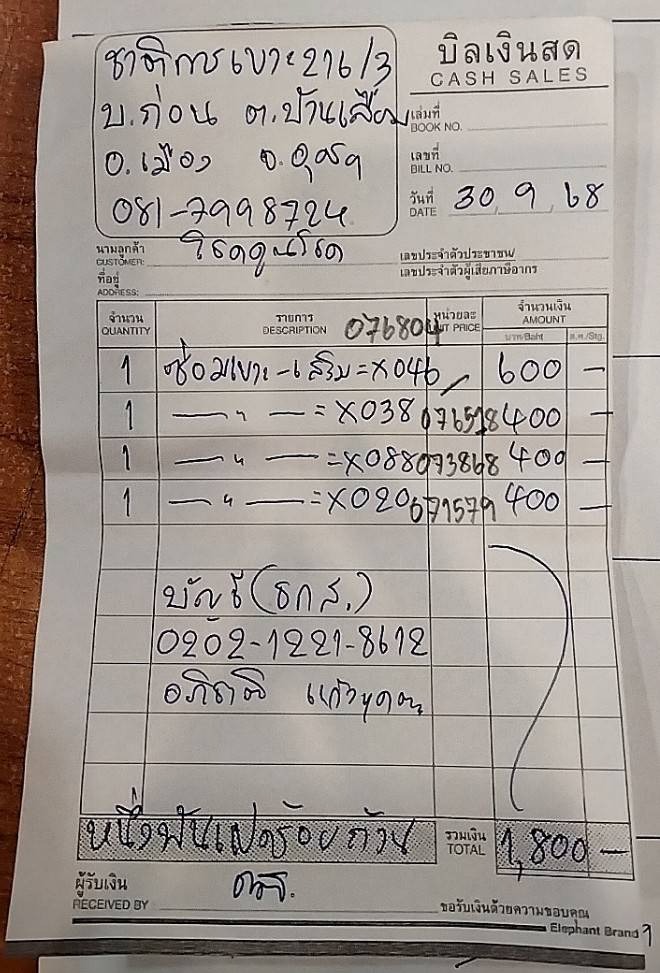 ชาติการเบาะ 216/3
บ.ก่อน ต.บ้านเลื่อม
อ.เมือง จ.อุดร
081-7998724
บิลเงินสด
CASH SALES
เล่มที่
BOOK NO.
เลขที่
BILL NO.
วันที่ 30 9 68
DATE
นามลูกค้า
CUSTOMER:
ที่อยู่
ADDRESS:
เลขประจำตัวประชาชน/
เลขประจำตัวผู้เสียภาษีอากร
จำนวน รายการ หน่วยละ จำนวนเงิน
QUANTITY DESCRIPTION 076804 UNIT PRICE AMOUNT
บาท/Baht ส.ต./Stg.
1 ซ่อมเบาะ-เสริม = X046 600 –
1 — " — = X038 076518 400 –
1 — " — = X088 073868 400 –
1 — " — = X020 671579 400 –
บัญชี (ธกส.)
0202-1221-8612
หนึ่งพันแปดร้อยถ้วน รวมเงิน 1,800 –
TOTAL
ผู้รับเงิน
RECEIVED BY
ขอรับเงินด้วยความขอบคุณ
Elephant Brand